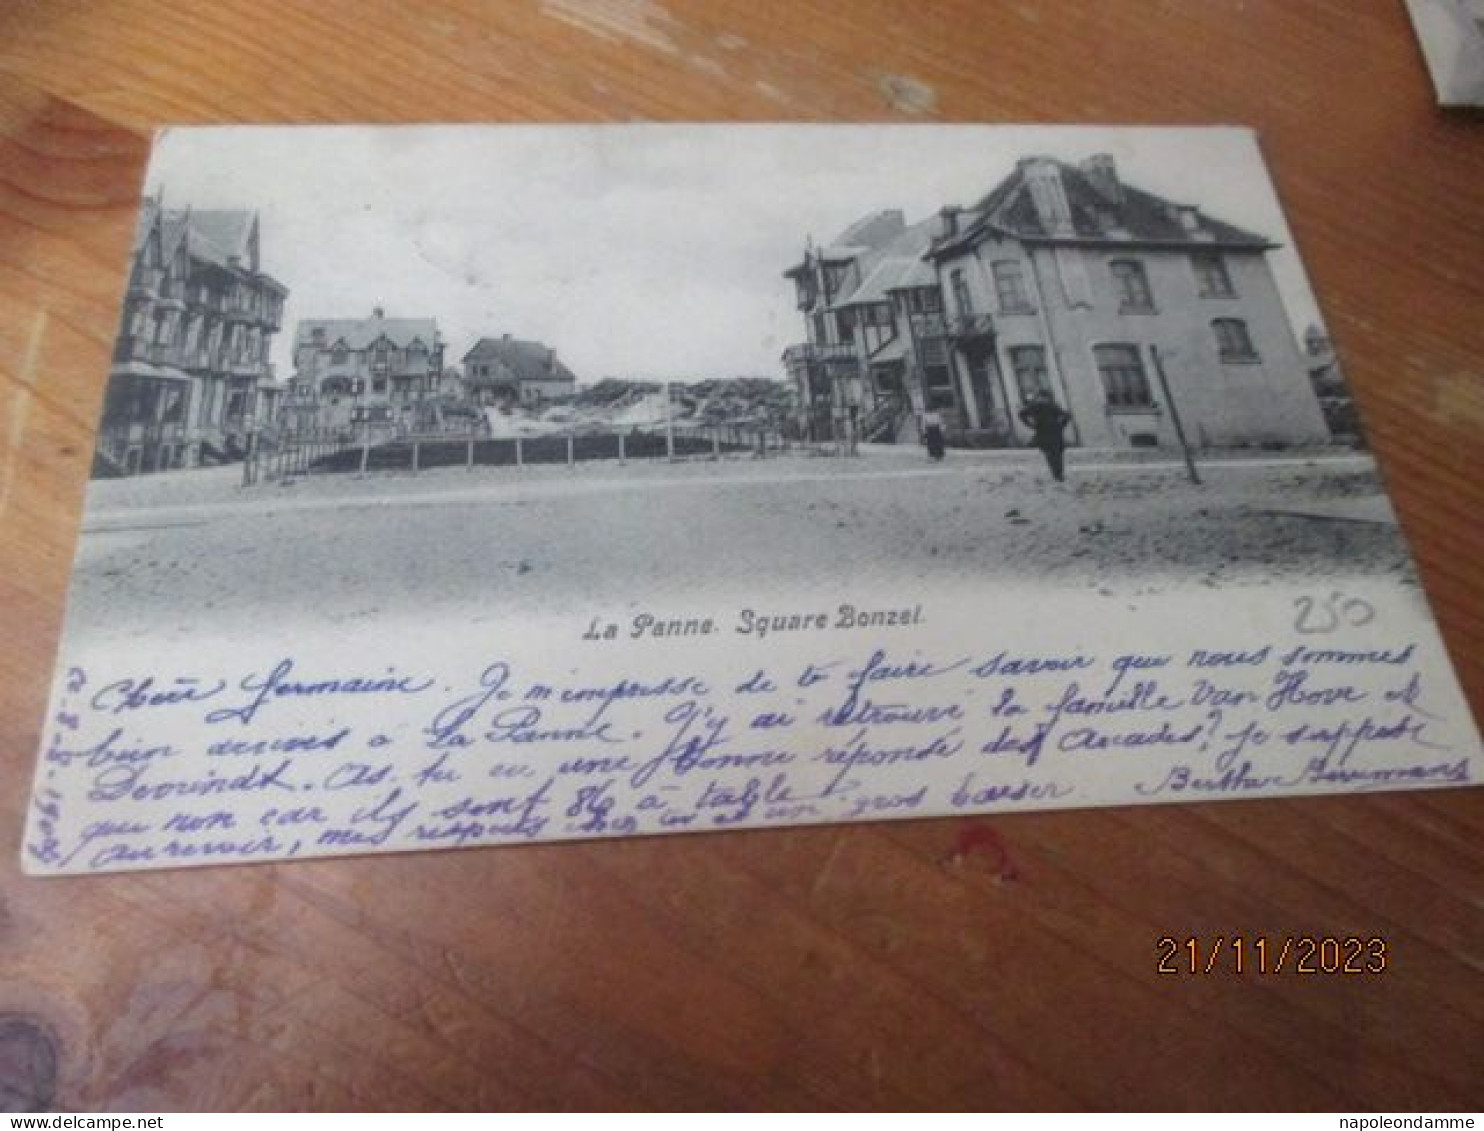 La Panne. Square Bonzel.
250
Chère Germaine. Je m'empresse de te faire savoir que nous sommes
bien arrivés à La Panne. J'y ai retrouvé la famille Van Hove et
Devrindt. As-tu eu une bonne réponse des Arcades? Je suppose
que non car ils sont 86 à table.
Au revoir, mes respects chez toi et un gros baiser. Bertha
21/11/2023
napoleondamme